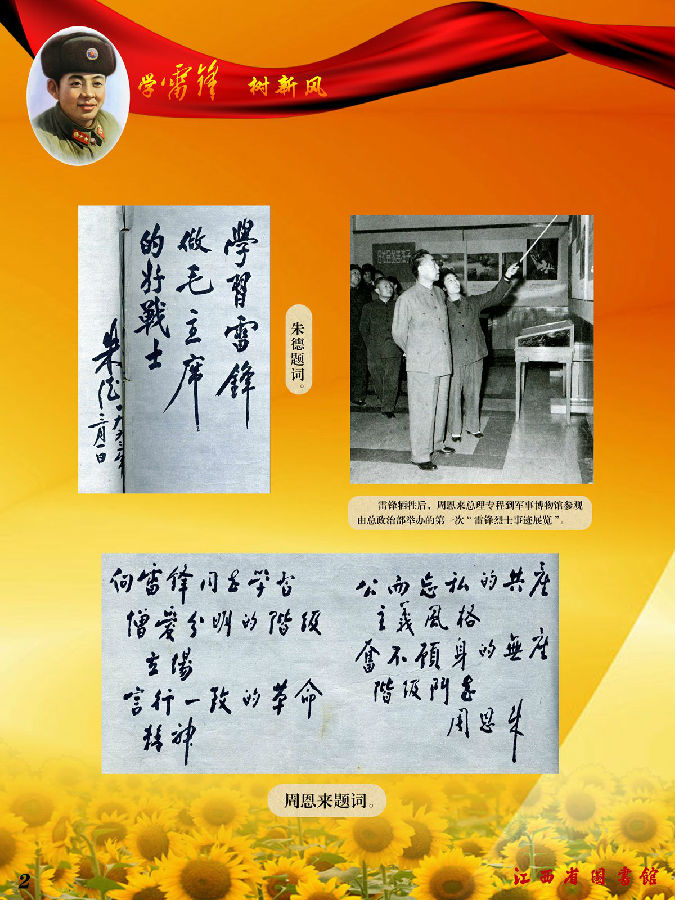 学雷锋 树新风
學習雷鋒
做毛主席
的好戰士
朱德 一九六三年
三月一日
朱德题词。
雷锋牺牲后，周恩来总理专程到军事博物馆参观
由总政治部举办的第一次“雷锋烈士事迹展览”。
向雷锋同志学习
憎爱分明的階级
立場
言行一致的革命
精神
公而忘私的共産
主義風格
奮不顧身的無産
階级鬥志
周恩来
周恩来题词。
2
江西省图書館